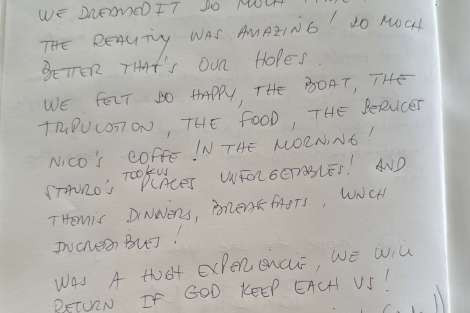 WE DREAMED IT SO MUCH
THE REALITIY WAS AMAZING! SO MUCH
BETTER THAT'S OUR HOPES.
WE FELT SO HAPPY, THE BOAT, THE
TRIPULOTION, THE FOOD, THE SERVICES
NICO'S COFFE IN THE MORNING!
STAURO'S TOOK US PLACES UNFORGETABLES! AND
THEMIS DINNERS, BREAKFASTS, LUNCH
INCREDIBLES!
WAS A HUGH EXPERIENCIE, WE WILL
RETURN IF GOD KEEP EACH US!